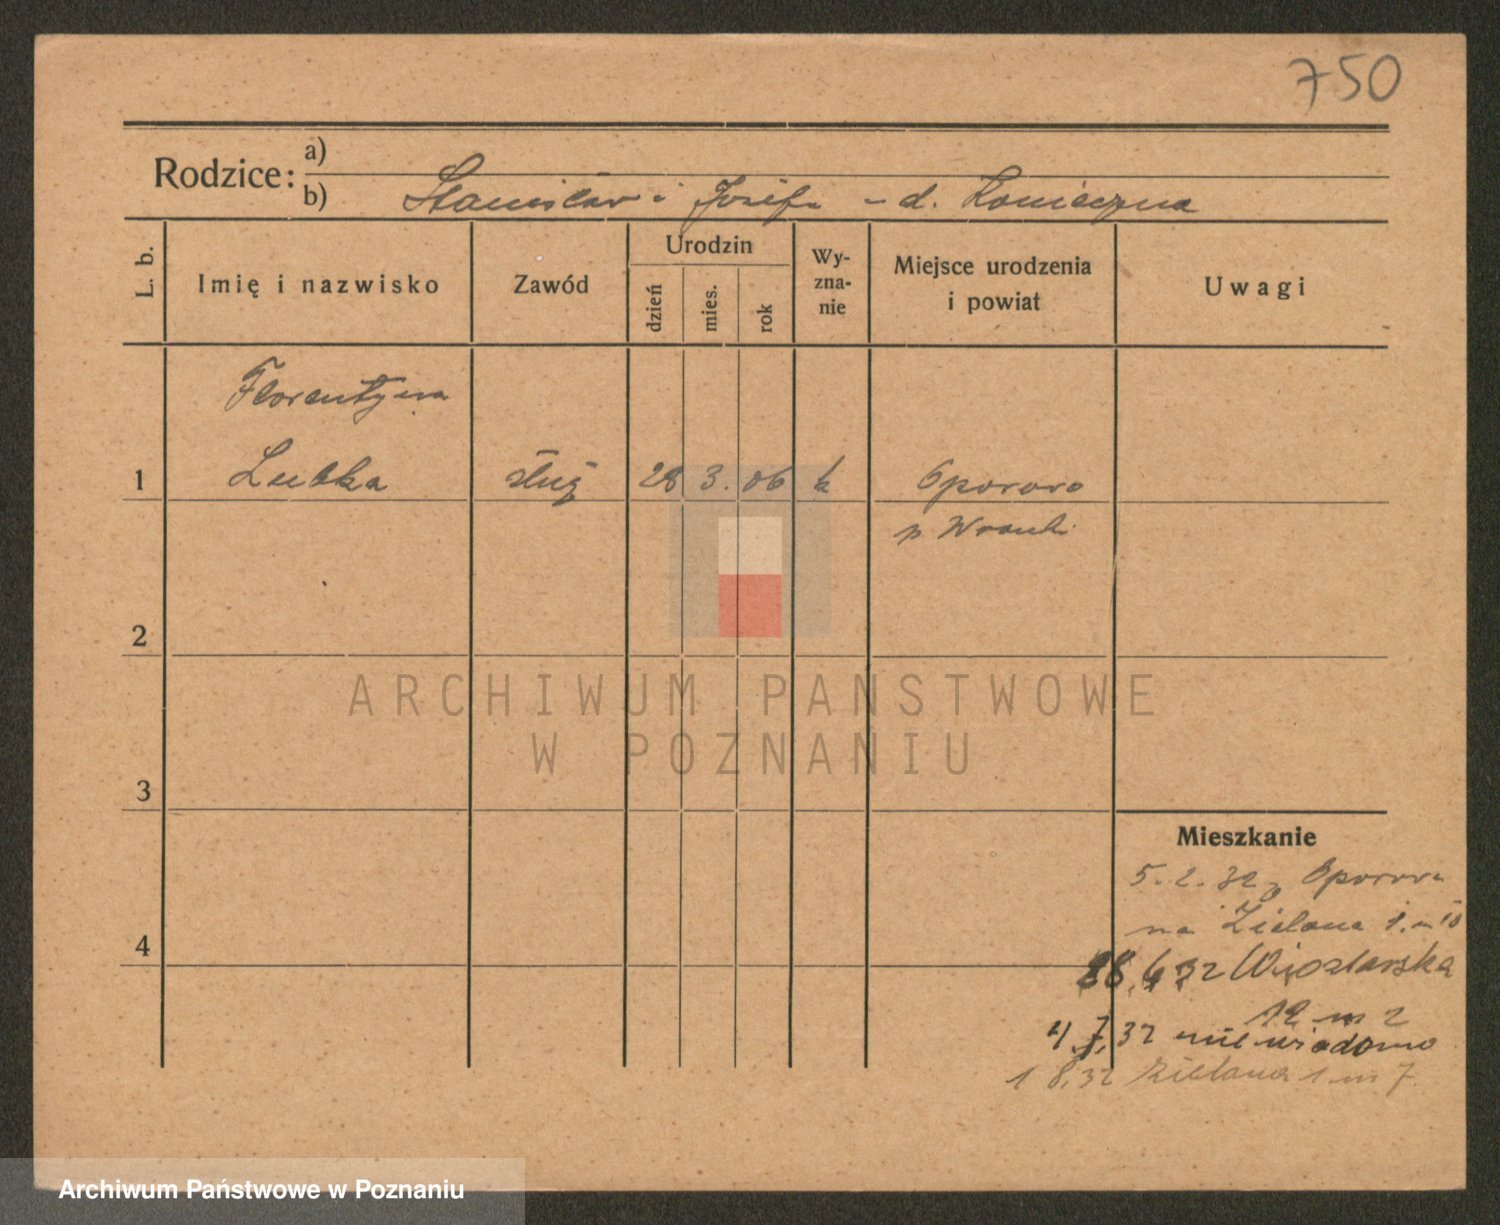 750
Rodzice:
a)
b) Stanisław i Józefa - d. Konieczna
L. b.
Imię i nazwisko
Zawód
Urodzin
dzień
mies.
rok
Wy-
zna-
nie
Miejsce urodzenia
i powiat
Uwagi
Florentyna
1 Lubka służ 28 3. 06 k Oporowo
p. Wronki
2
ARCHIWUM PAŃSTWOWE
W POZNANIU
3
Mieszkanie
5.2.32 z Oporowa
4 na Zielona 1. m 10
28.6 32 Wioślarska
12 m 2
4.7.32 niewiadomo
1 8.32 Zielona 1 m 7
Archiwum Państwowe w Poznaniu